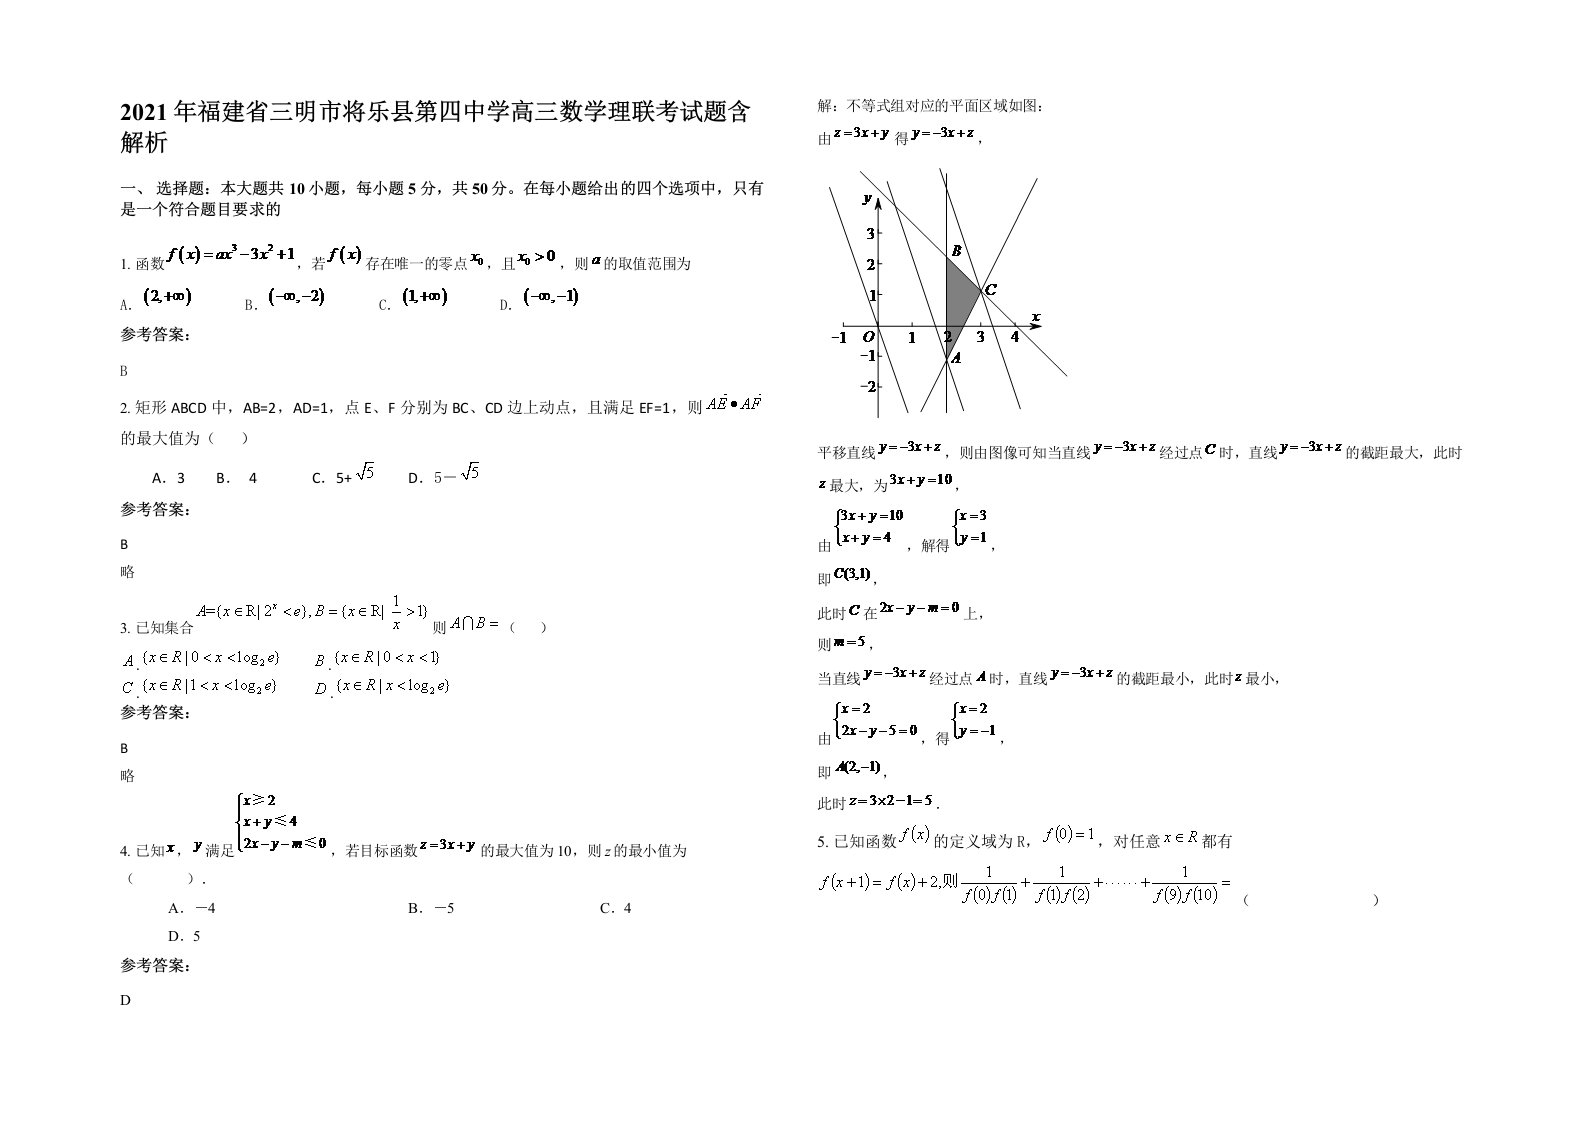 2021 年福建省三明市将乐县第四中学高三数学理联考试题含
解析
一、 选择题：本大题共 10 小题，每小题 5 分，共 50 分。在每小题给出的四个选项中，只有
是一个符合题目要求的
1. 函数 f(x)=ax³−3x²+1，若 f(x) 存在唯一的零点 x₀，且 x₀>0，则 a 的取值范围为
A. (2,+∞) B. (−∞,−2) C. (1,+∞) D. (−∞,−1)
参考答案：
B
2. 矩形 ABCD 中，AB=2，AD=1，点 E、F 分别为 BC、CD 边上动点，且满足 EF=1，则 AE●AF
的最大值为（ ）
A．3 B． 4 C．5+√5 D．5－√5
参考答案：
B
略
3. 已知集合 A={x∈R| 2ˣ<e}, B={x∈R| 1/x >1} 则 A∩B=（ ）
A . {x∈R|0<x<log₂e} B . {x∈R|0<x<1}
C . {x∈R|1<x<log₂e} D . {x∈R|x<log₂e}
参考答案：
B
略
4. 已知 x，y 满足 {x≥2 x+y≤4 2x−y−m≤0，若目标函数 z=3x+y 的最大值为 10，则 z 的最小值为
（ ）．
A．－4 B．－5 C．4
D．5
参考答案：
D
解：不等式组对应的平面区域如图：
由 z=3x+y 得 y=−3x+z，
y
3
B
2
1
C
x
−1 O 1 2 3 4
−1
A
−2
平移直线 y=−3x+z，则由图像可知当直线 y=−3x+z 经过点 C 时，直线 y=−3x+z 的截距最大，此时
z 最大，为 3x+y=10，
由 {3x+y=10 x+y=4，解得 {x=3 y=1，
即 C(3,1)，
此时 C 在 2x−y−m=0 上，
则 m=5，
当直线 y=−3x+z 经过点 A 时，直线 y=−3x+z 的截距最小，此时 z 最小，
由 {x=2 2x−y−5=0，得 {x=2 y=−1，
即 A(2,−1)，
此时 z=3×2−1=5．
5. 已知函数 f(x) 的定义域为 R，f(0)=1，对任意 x∈R 都有
f(x+1)=f(x)+2,则 1/f(0)f(1) + 1/f(1)f(2) +······+ 1/f(9)f(10) =（ ）